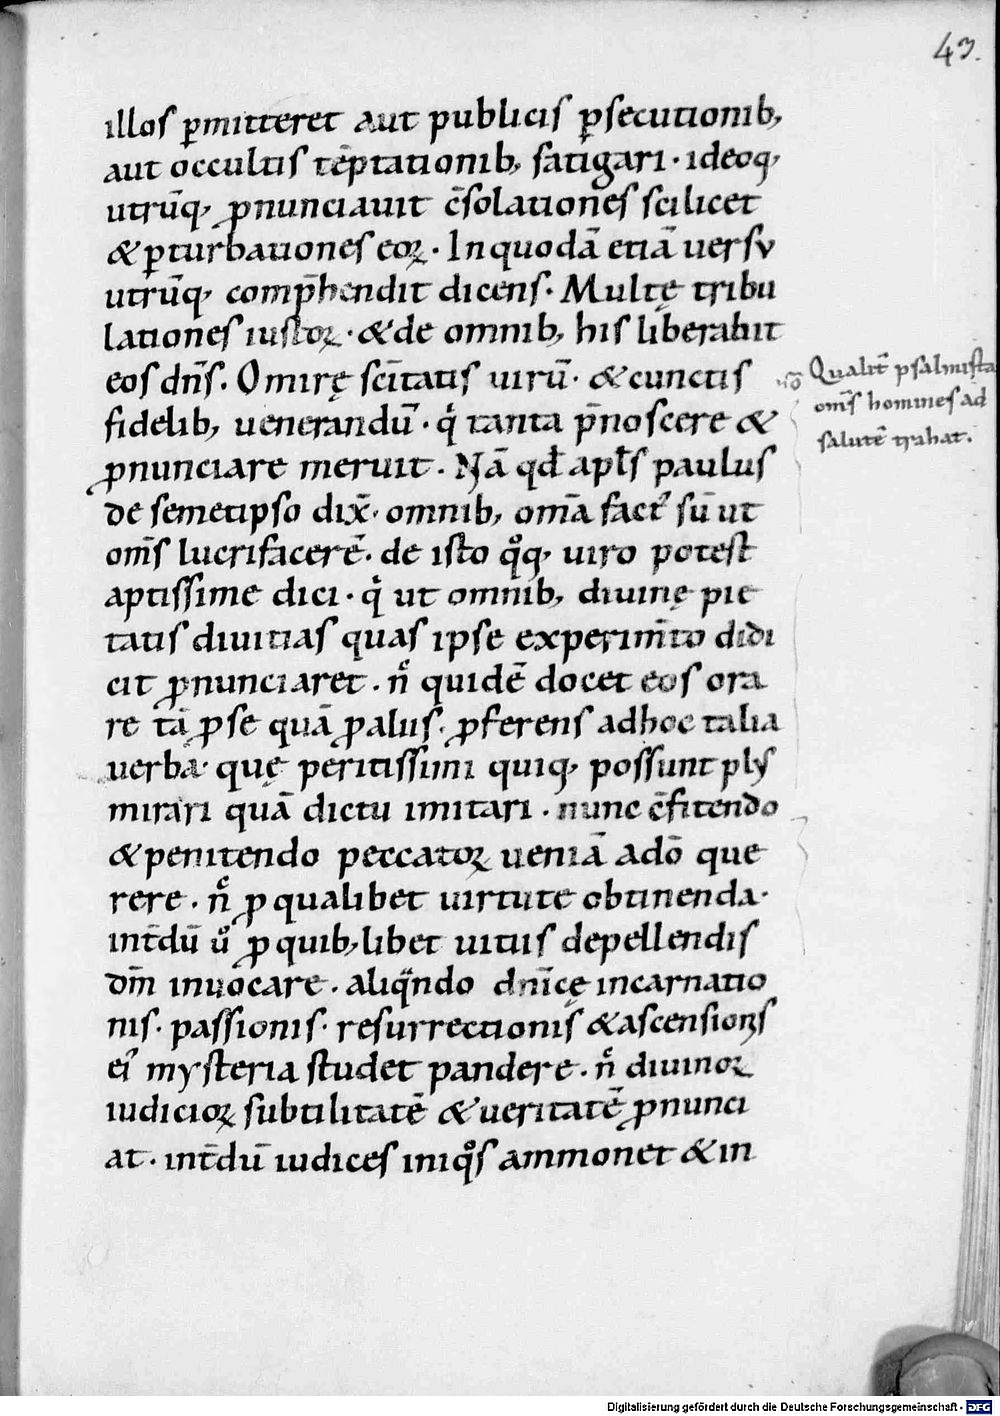 43.
illos ꝑmitteret aut publicis ꝑsecutionib;
aut occultis tēptationib; fatigari · ideoq;
utrūq; ꝓnunciauit c̄solationes scilicet
& ꝑturbationes eoꝝ · In quodā etiā uersv
utrūq; comp̄hendit dicens · Multę tribu
lationes iustoꝝ · & de omnib; his liberabit
eos dn̄s. O mirę sc̄itatis uirū · & cunctis
fidelib; uenerandū · qͥ tanta p̄noscere &
ꝓnunciare meruit · Nā qđ apl̄s paulus
de semetipso dix̄ · omnib; om̄a factꝰ sū ut
om̄s lucrifacerē · de isto qͦq; uiro potest
aptissime dici · qͥ ut omnib; diuinę pie
tatis diuitias quas ipse experim̄to didi
cit ꝓnunciaret · n̄ quidē docet eos ora
re tā ꝓ se quā ꝓ aliis · ꝓferens ad hoc talia
uerba · quę peritissimi quiq; possunt pl'
mirari quā dictu imitari · nunc c̄fitendo
& penitendo peccatoꝝ ueniā a dō que
rere · n̄ ꝓ qualibet uirtute obtinenda ·
int̄dū uͦ ꝓ quib;libet uitiis depellendis
dm̄ inuocare · aliqͣndo dn̄icę incarnatio
nis · passionis · resurrectionis & ascensionis
eiꝰ mysteria studet pandere · n̄ diuinoꝝ
iudicioꝝ subtilitatē & ueritatē ꝓnunci
at · int̄dū iudices iniqͦs ammonet & in
Qualit̄ psalmista
om̄s homines ad
salutē trahat.
Digitalisierung gefördert durch die Deutsche Forschungsgemeinschaft - DFG